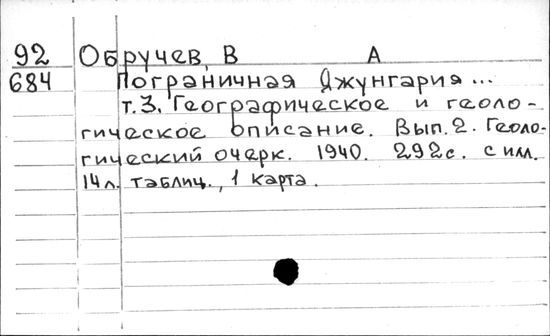 92 Обручев, В А
684 Пограничная Джунгария...
т.3. Географическое и геоло-
гическое описание. Вып. 2. Геоло-
гический очерк. 1940. 292с. с илл.
14 л. таблиц., 1 карта.